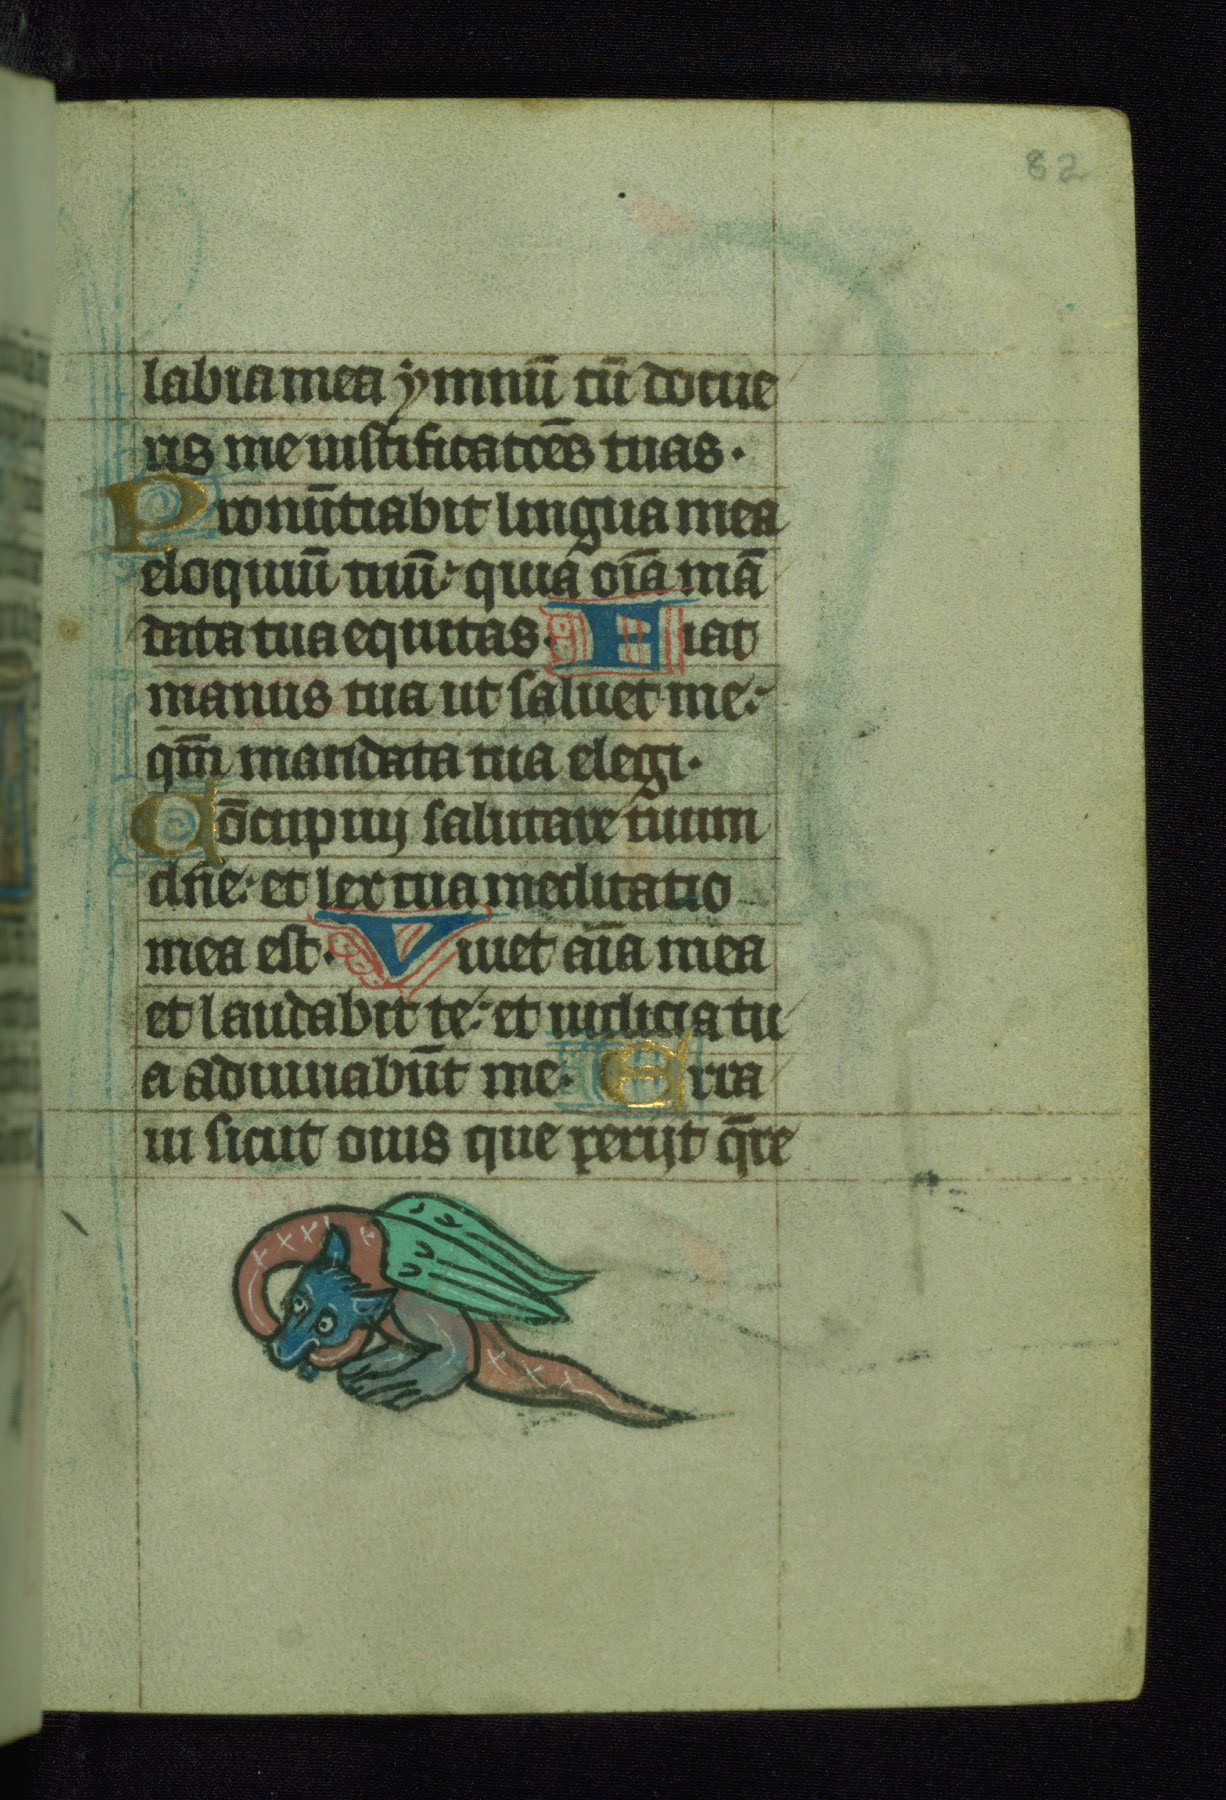 82
labia mea ẏmnū cū docue
ris me iustificatōēs tuas·
Pronūtiabit lingua mea
eloquiū tuū: quia oīa mā
data tua equitas· Fiat
manus tua ut saluet me:
qm̄ mandata tua elegi·
Cōcupiuij salutare tuum
dn̄e: et lex tua meditatio
mea est· Viuet aīa mea
et laudabit te: et iudicia tu
a adiuuabūt me· Erra
ui sicut ouis que perijt q̄re